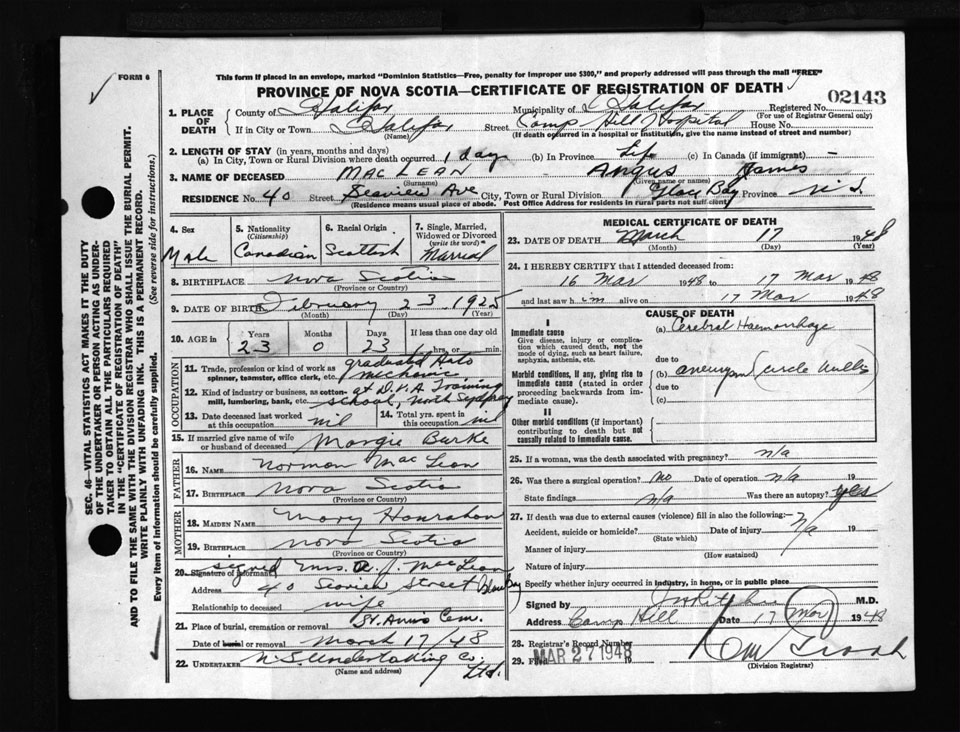 FORM 6
This form if placed in an envelope, marked "Dominion Statistics—Free, penalty for improper use $300," and properly addressed will pass through the mail "FREE"
PROVINCE OF NOVA SCOTIA—CERTIFICATE OF REGISTRATION OF DEATH
02143
1. PLACE OF DEATH
County of Halifax Municipality of Halifax Registered No.
(For use of Registrar General only)
If in City or Town Halifax Street Camp Hill Hospital House No.
(Name) (If death occurred in a hospital or institution, give the name instead of street and number)
2. LENGTH OF STAY (in years, months and days)
(a) In City, Town or Rural Division where death occurred 1 day (b) In Province Life (c) In Canada (if immigrant) —
3. NAME OF DECEASED MACLEAN Angus James
(Surname) (Given name or names)
RESIDENCE No. 40 Street Seaview Ave City, Town or Rural Division Glace Bay Province N.S.
(Residence means usual place of abode. Post Office Address for residents in rural parts not sufficient)
4. Sex
Male
5. Nationality
(Citizenship)
Canadian
6. Racial Origin
Scottish
7. Single, Married, Widowed or Divorced
(write the word)
Married
8. BIRTHPLACE Nova Scotia
(Province or Country)
9. DATE OF BIRTH February 23 1925
(Month) (Day) (Year)
10. AGE in Years Months Days If less than one day old
23 0 23 hrs. or min.
OCCUPATION
11. Trade, profession or kind of work as spinner, teamster, office clerk, etc. graduated Auto mechanic
12. Kind of industry or business, as cotton-mill, lumbering, bank, etc. at D.V.A. Training school, North Sydney
13. Date deceased last worked at this occupation nil
14. Total yrs. spent in this occupation nil
15. If married give name of wife or husband of deceased Margie Burke
FATHER
16. NAME Norman MacLean
17. BIRTHPLACE Nova Scotia
(Province or Country)
MOTHER
18. MAIDEN NAME Mary Hanrahan
19. BIRTHPLACE Nova Scotia
(Province or Country)
20. Signature of informant signed Mrs. A. J. MacLean
Address 40 Seaview Street Glace Bay
Relationship to deceased wife
21. Place of burial, cremation or removal St. Anns Cem.
Date of burial or removal March 17/48
22. UNDERTAKER N.S. Undertaking Co. Ltd.
(Name and address)
MEDICAL CERTIFICATE OF DEATH
23. DATE OF DEATH March 17 1948
(Month) (Day) (Year)
24. I HEREBY CERTIFY that I attended deceased from:
16 Mar 1948 to 17 Mar 1948
and last saw him alive on 17 Mar 1948
CAUSE OF DEATH
I
Immediate cause
Give disease, injury or complication which caused death, not the mode of dying, such as heart failure, asphyxia, asthenia, etc.
(a) Cerebral Haemorrhage
due to
Morbid conditions, if any, giving rise to immediate cause (stated in order proceeding backwards from immediate cause).
(b) aneurysm (circle Willis)
due to
(c)
II
Other morbid conditions (if important) contributing to death but not causally related to immediate cause.
25. If a woman, was the death associated with pregnancy? n/a
26. Was there a surgical operation? no Date of operation n/a 19
State findings n/a Was there an autopsy? yes
27. If death was due to external causes (violence) fill in also the following:— n/a
Accident, suicide or homicide? Date of injury 19
(State which)
Manner of injury
(How sustained)
Nature of injury
Specify whether injury occurred in industry, in home, or in public place
Signed by M.D.
Address Camp Hill Date 17 Mar 1948
28. Registrar's Record Number
29. Filed MAR 27 1948 19
(Division Registrar)
SEC. 46—VITAL STATISTICS ACT MAKES IT THE DUTY
OF THE UNDERTAKER OR PERSON ACTING AS UNDER-
TAKER TO OBTAIN ALL THE PARTICULARS REQUIRED
IN THE "CERTIFICATE OF REGISTRATION OF DEATH"
AND TO FILE THE SAME WITH THE DIVISION REGISTRAR WHO SHALL ISSUE THE BURIAL PERMIT.
WRITE PLAINLY WITH UNFADING INK. THIS IS A PERMANENT RECORD.
Every item of information should be carefully supplied. (See reverse side for instructions.)